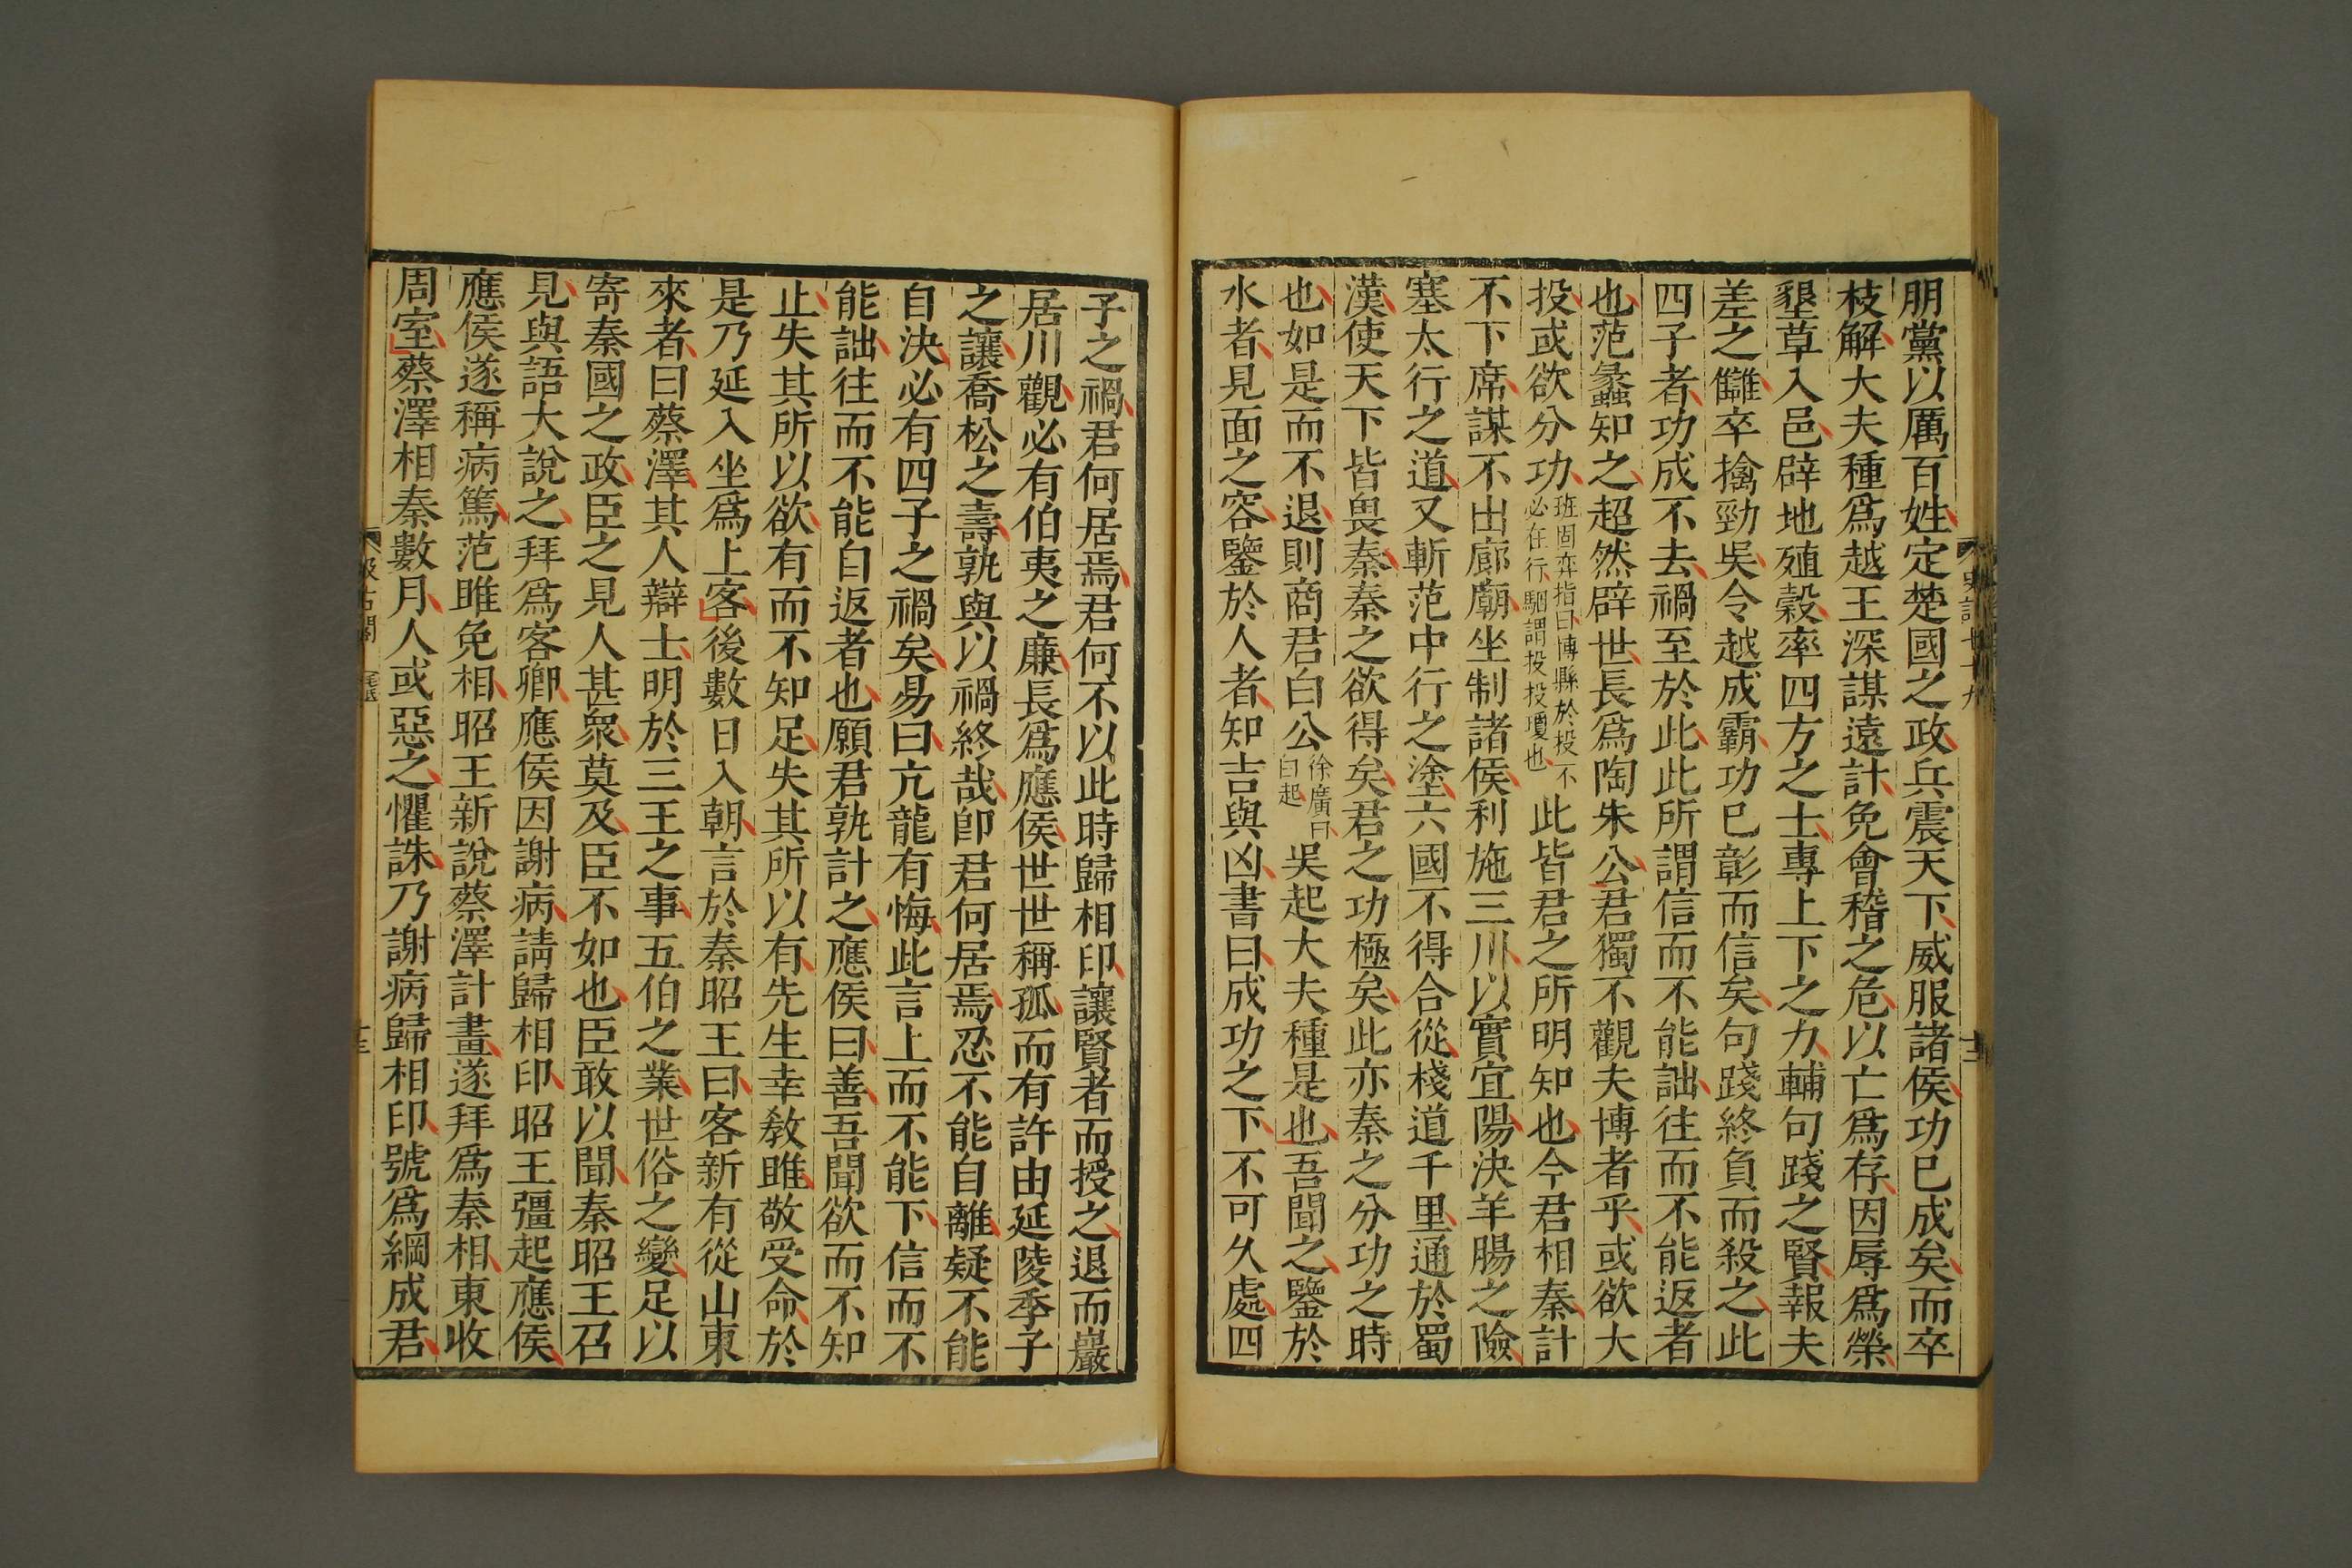 朋黨以厲百姓定楚國之政兵震天下威服諸侯功已成矣而卒
枝解大夫種爲越王深謀遠計免會稽之危以亡爲存因辱爲榮
墾草入邑辟地殖穀率四方之士專上下之力輔句踐之賢報夫
差之讎卒擒勁吳令越成霸功已彰而信矣句踐終負而殺之此
四子者功成不去禍至於此此所謂信而不能詘往而不能返者
也范蠡知之超然辟世長爲陶朱公君獨不觀夫博者乎或欲大
投或欲分功班固弈指曰博縣於投不必在行駰謂投投瓊也此皆君之所明知也今君相秦計
不下席謀不出廊廟坐制諸侯利施三川以實宜陽決羊腸之險
塞太行之道又斬范中行之塗六國不得合從棧道千里通於蜀
漢使天下皆畏秦秦之欲得矣君之功極矣此亦秦之分功之時
也如是而不退則商君白公徐廣曰白起吳起大夫種是也吾聞之鑒於
水者見面之容鑒於人者知吉與凶書曰成功之下不可久處四
子之禍君何居焉君何不以此時歸相印讓賢者而授之退而巖
居川觀必有伯夷之廉長爲應侯世世稱孤而有許由延陵季子
之讓喬松之壽孰與以禍終哉卽君何居焉忍不能自離疑不能
自決必有四子之禍矣易曰亢龍有悔此言上而不能下信而不
能詘往而不能自返者也願君孰計之應侯曰善吾聞欲而不知
止失其所以欲有而不知足失其所以有先生幸敎雎敬受命於
是乃延入坐爲上客後數日入朝言於秦昭王曰客新有從山東
來者曰蔡澤其人辯士明於三王之事五伯之業世俗之變足以
寄秦國之政臣之見人甚衆莫及臣不如也臣敢以聞秦昭王召
見與語大說之拜爲客卿應侯因謝病請歸相印昭王彊起應侯
應侯遂稱病篤范雎免相昭王新說蔡澤計畫遂拜爲秦相東收
周室蔡澤相秦數月人或惡之懼誅乃謝病歸相印號爲綱成君